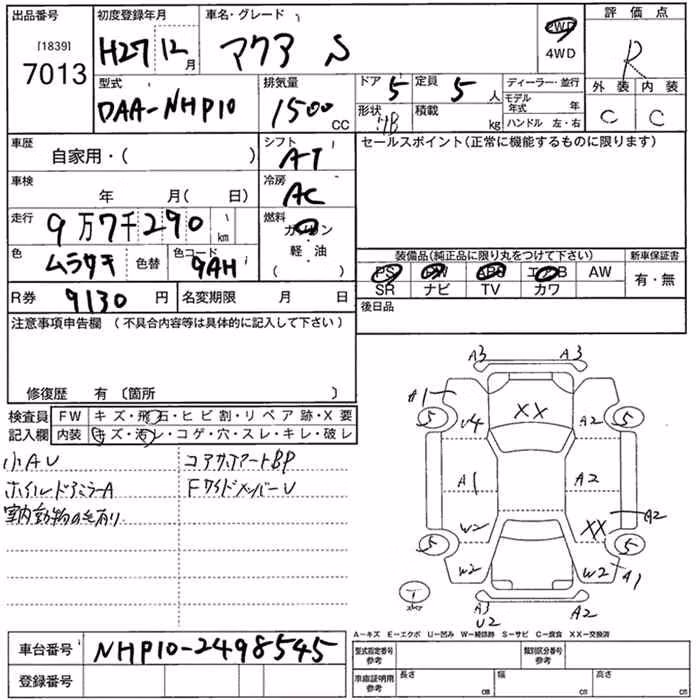 出品番号
[1839]
7013
初度登録年月
H27 12月
車名・グレード
アクア S
2WD
4WD
評価点
R
型式
DAA-NHP10
排気量
1500 CC
ドア 5
定員 5 人
形状 HB
積載 kg
ディーラー・並行
モデル年式 年
ハンドル 左・右
外装 内装
C C
車歴
自家用・( )
シフト
AT
セールスポイント(正常に機能するものに限ります)
車検
年 月( 日)
冷房
AC
走行
9万7千290 km
燃料
ガソリン
軽・油
( )
色
ムラサキ
色替
色コード
9AH
装備品(純正品に限り丸をつけて下さい)
PS PW ABS エアB AW
SR ナビ TV カワ
新車保証書
有・無
R券 9130 円
名変期限 月 日
後日品
注意事項申告欄 (不具合内容等は具体的に記入して下さい)
修復歴 有 〔箇所 〕
検査員
記入欄
FW キズ・飛石・ヒビ割・リペア跡・X要
内装 キズ・汚レ・コゲ・穴・スレ・キレ・破レ
小AU
コアサポアートBP
ホイルドアミラーA
FサイドメンバーU
室内動物の毛有り
A3 A3
A1
5 5
U4 XX A2
A1 A2
W2 XX A2
5 5
W2 W2 A1
1
A3 A2
U2
A-キズ E-エクボ U-凹み W-補修跡 S-サビ C-腐食 XX-交換済
車台番号 NHP10-2498545
登録番号
型式指定番号
参考
類別区分番号
参考
車庫証明用
参考
長さ cm
幅 cm
高さ cm